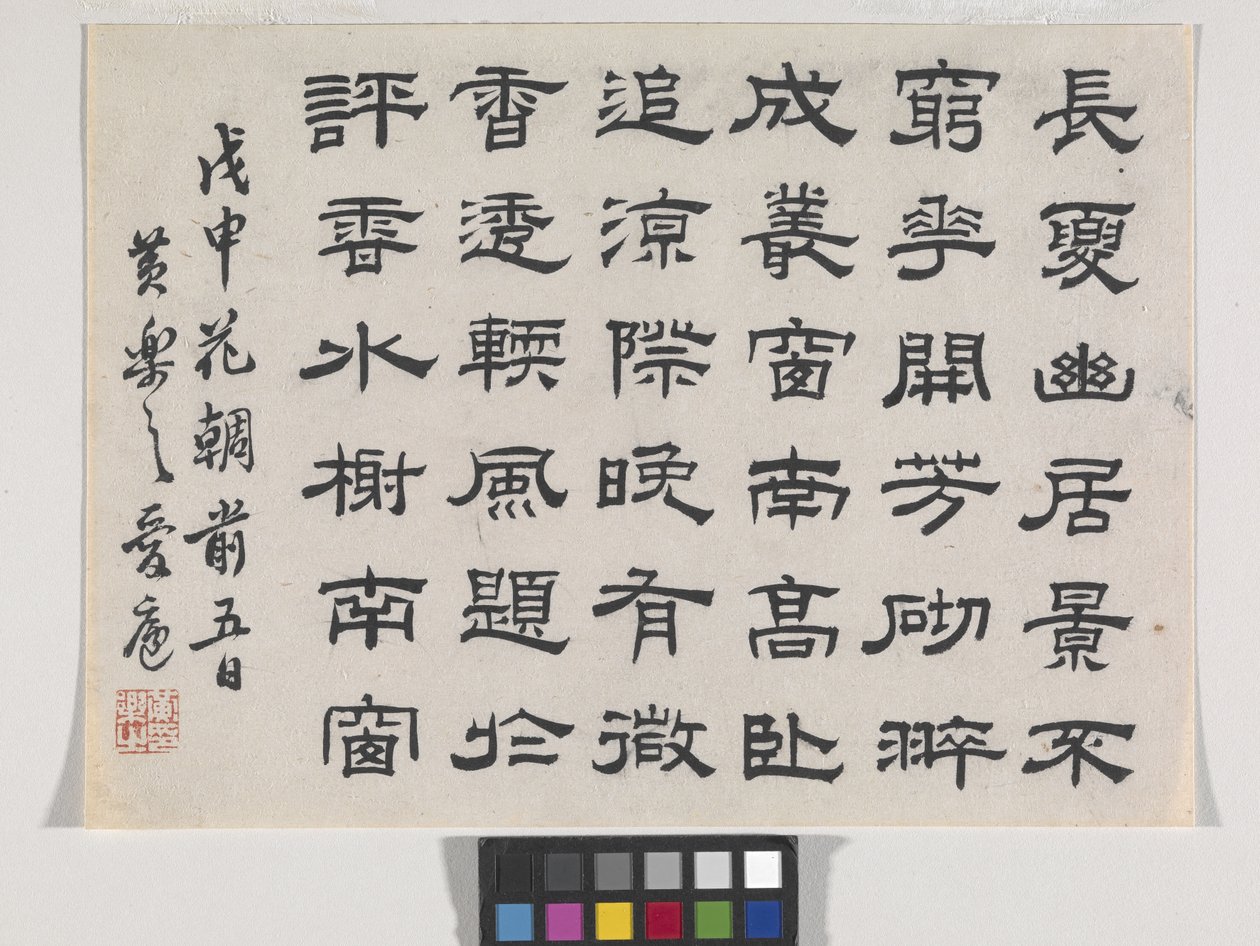 長夏幽居景不
窮花開芳砌翠
成叢窗南高臥
追涼際晚有微
香透輭風題於
評香水榭南窗
戊申花朝前五日
黃樂之愛廬
黃印樂之